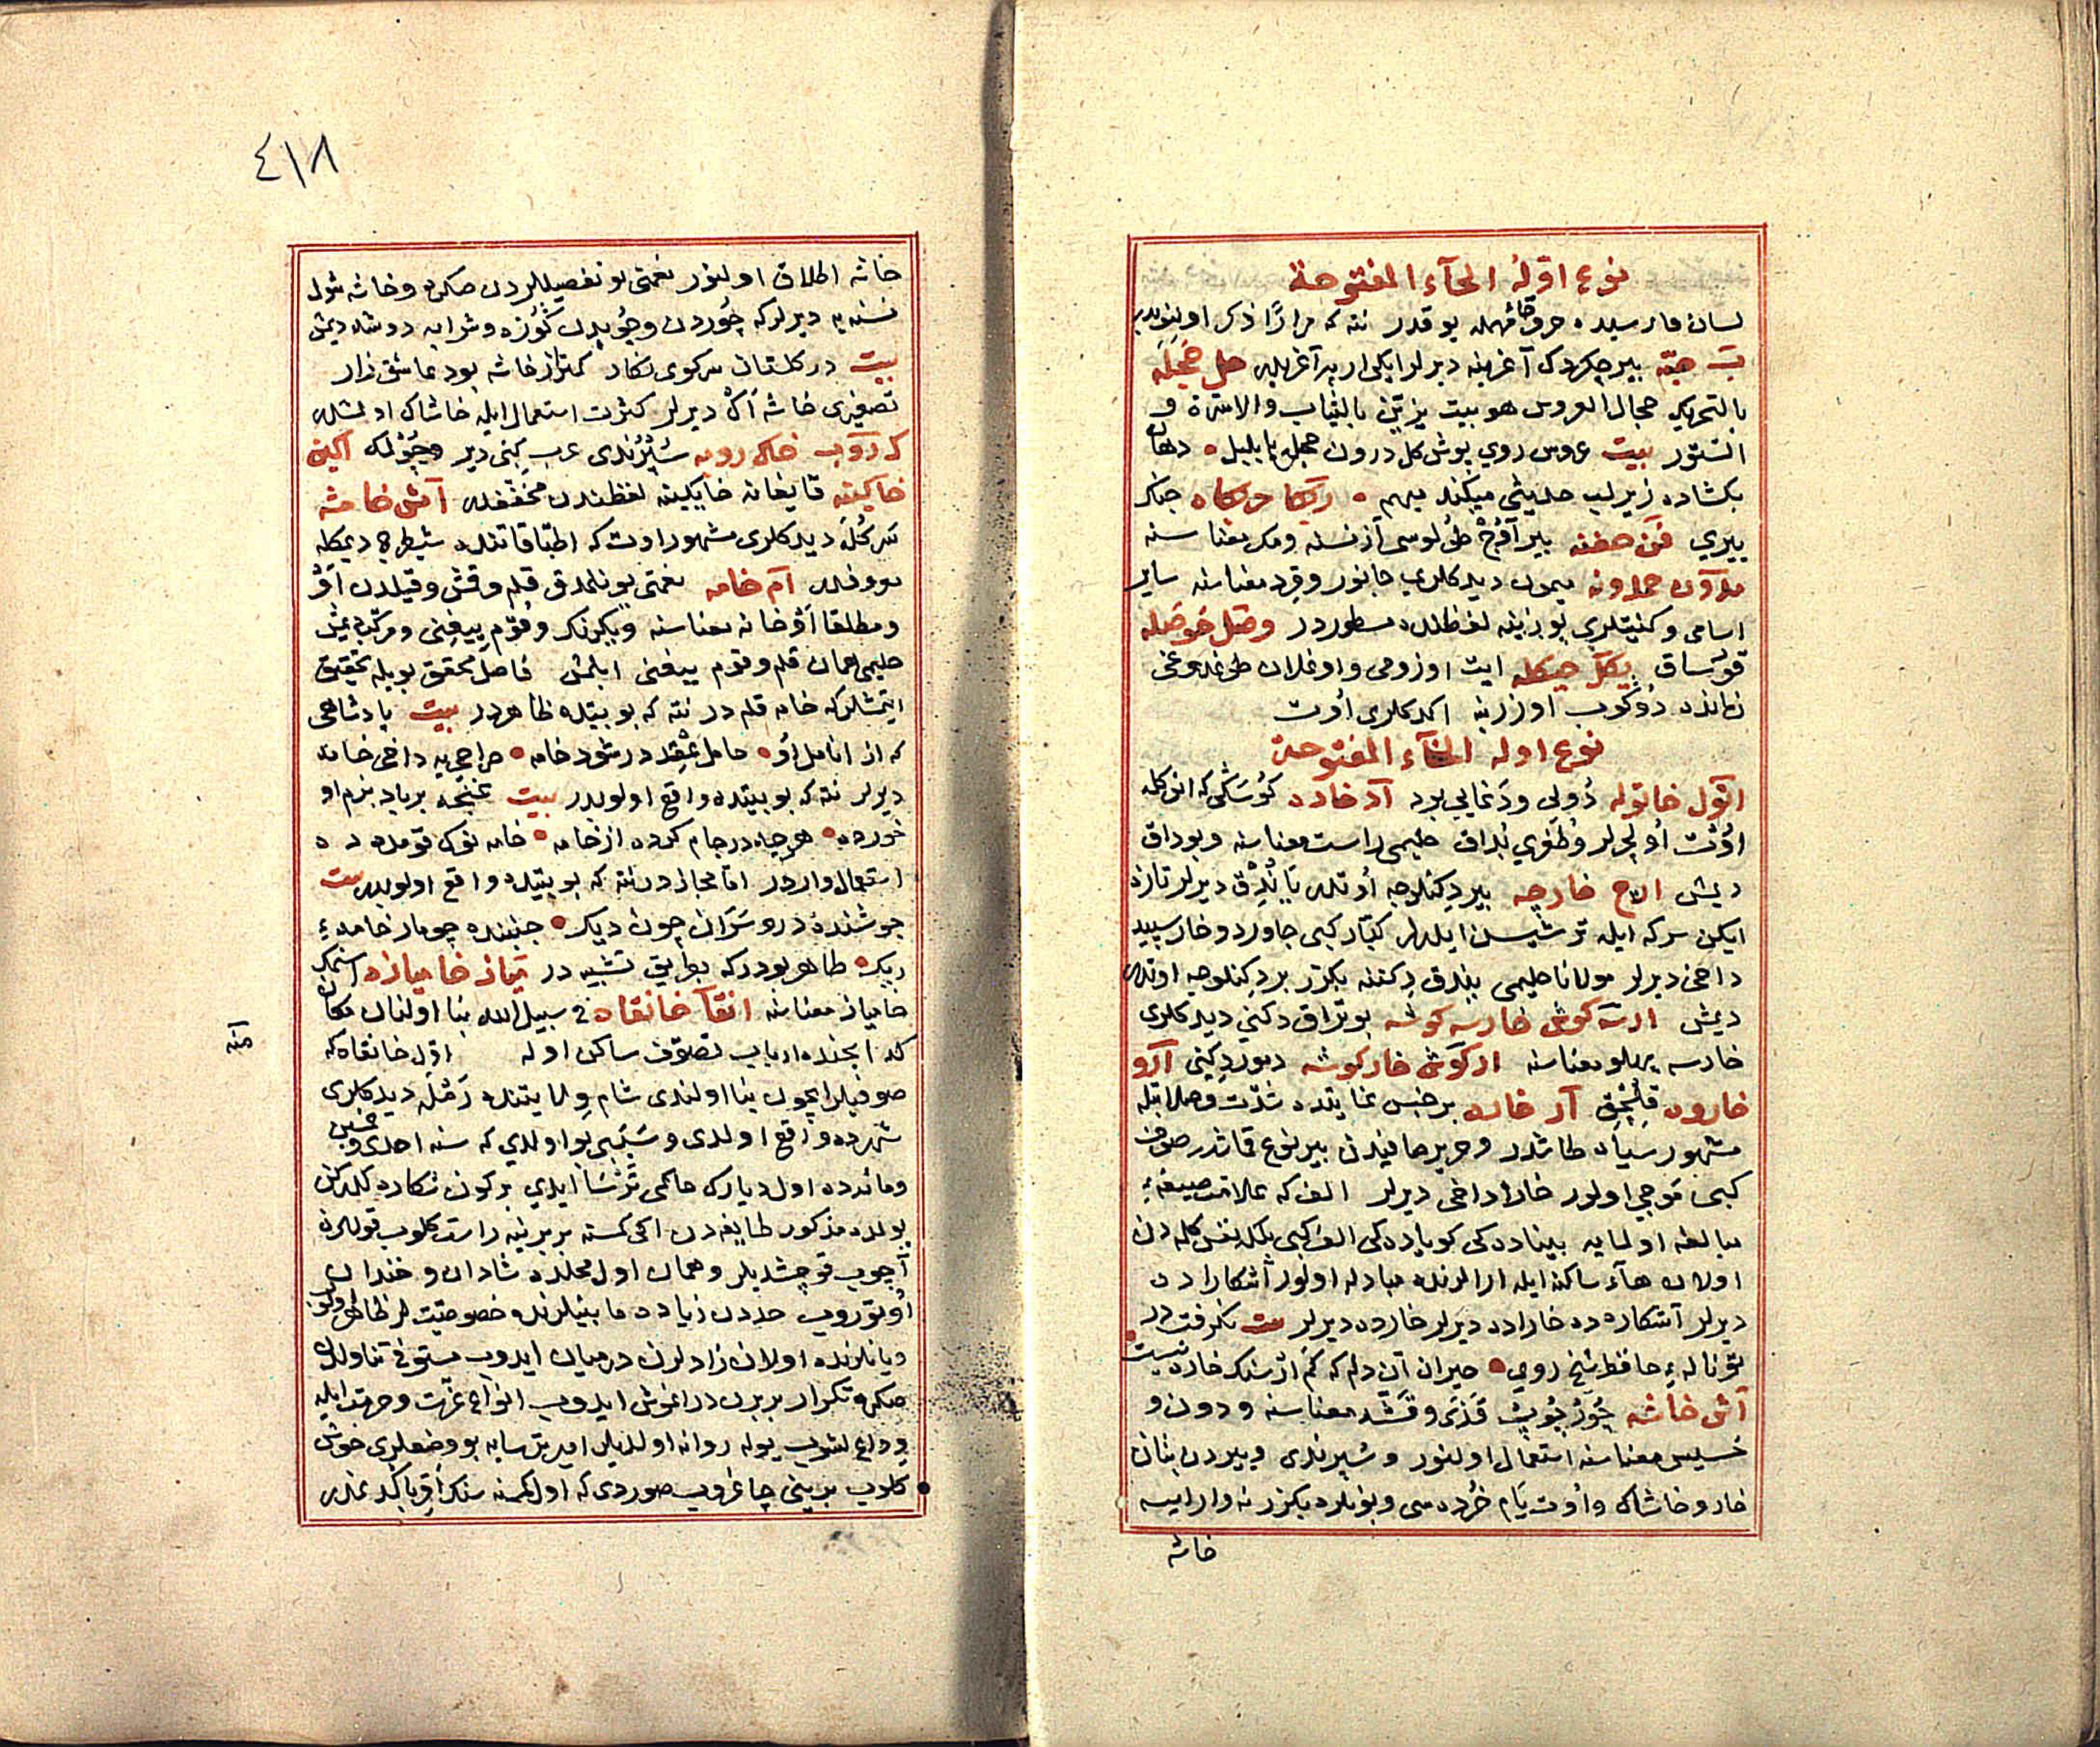 نوع اوله الحآء المفتوحة
لسان فارسیده حرف حا مهمله یوقدر نته که مرارًا ذکر اولنوبدر
حبّه بیر چکردک آغرینه دیرلر ایکی ارپه آغریدر حجل حجله
بالتحریک حجال العروس هو بیت یزیّن بالثیاب والاسرّة و
الستور بیت عروس روی پوش کل درون حجله با بلبل • دهان
بکشاده زیر لب حدیثی میکند مبهم • رکا حرکاه
بیری حفنه بیر آوُچ طولوسی آز نسنه ومک معناسنه
حمدونه میمون دیدکلری جانور وقرد معناسنه سایر
اسامی وکنیتلری بوزینه لفظنده مسطوردر وصل حوصله
قورساق یکل حیکله ایت اوزومی واوغلان طوغدوغی
زمانده دوکوب اوزرینه اکدکلری اوت
نوع اوله الخآء المفتوحة
اتول خاتوله دُولی ودغایی بود آد خاده کوسَکی که انوکله
اوُت اولچرلر وطغری بُداق حلیمی راست معناسنه وبوداق
دیمش الاچ خارچه بیر دکنلوجه اوتدر یاندق دیرلر تازه
ایکن سرکه ایله ترشیسن ایلرلر کبّار کبی جاورد وخار سپید
داخی دیرلر مولانا حلیمی یندق دکننه بکزر بر دکنلوجه اوتدر
دیمش ارسه کوش خارسه کوشه بوتراق دکنی دیدکلری
خارسه پهلو معناسنه ارکوش خارکوشه دمور دکنی آرو
خاروه قلنجق آر خاره بر جنس غایتده شدّت وصلابتله
مشهور سیاه طاشدر وحریر صافیدن بیر نوع قماشدر صوف
کبی موجی اولور خارا داخی دیرلر الف که علامت صیغهٔ
مبالغه اولمایه بیناده کی کویاده کی الف کبی بلکه نفس کلمه دن
اولان هآء ساکنه ایله ارالرنده مبادله اولور آشکاراده
دیرلر آشکاره ده خاراده دیرلر خاره ده دیرلر بیت نکرفت در
تو ناله‌ء حافظ بهیچ روی • حیران آن دلم که کم از سنک خاره نیست
آش خاشه چور چوپ قذی وقشه معناسنه ودون و
خسیس معناسنه استعمال اولنور وسپرندی ویردن بتان
خار وخاشاک واوت یام خُرده سی وبونلره بکزر نه وار ایسه
خاشه
٤١٨
خاشه اطلاق اولنور نعمتی بو تفصیللردن صکره وخاشه شول
نسنه یه دیرلر که چُوردن وچُوپدن کُوزه وشرابه دوشه دیمش
بیت در کلستان سر کوی نکار کمتر از خاشه بود عاشق زار
تصغیری خاشه آک دیرلر کثرت استعمال ایله خاشاک اولمشدر
ک روب خاک روبه سُپُرُندی عرب کنی دیر وچونلمک آکین
خاکینه قایغانه خایکینه لفظندن مخفّفدر آمش خامشه
سرکُله دیدکلری مشهور اوت که اطبّا قاتنده شیطرج دیمکله
معروفدر آم خامه نعمتی یونلمدق قلم وقش وقیلدن آق
ومطلقا آق خانه معناسنه
حلیمی همان قلم وقوم ییغنی ایلمش فاضل محقّق بویله تحقیق
ایتمشلر که خامه قلمدر نته که بو بیتده ظاهردر بیت پادشاهی
که از انامل او • حامل عقد در شود خامه • صراحی یه داخی خامه
دیرلر نته که بو بیتده واقع اولوبدر بیت غنچه بر یاد بزم او
خورده • هر چه در جام کرده از خامه • خامه نوک قومده ده
استعمال واردر امّا مجازدر نته که بو بیتده واقع اولوبدر بیت
جوشنده درو سَرَان چون دیک • جنبنده چو مار خامهء
ریک • ظاهر بودر که بطریق تشبیه در تماز خامیازه اسنمک
خامیاز معناسنه انقآ خانقاه فی سبیل الله بنا اولنان مکان
که انجنده ارباب تصوّف ساکن اوله اوّل خانقاه که
صوفیلر ایچون بنا اولندی شام ولایتنده رَمْلَه دیدکلری
شهرده واقع اولدی وسَبَبی بو اولدی که سنه احدی وخمسین
ومائه ده اول دیارک حاکمی تَرْسَا ایدی بر کون شکاره کیدرکن
یولده مذکور طایفه دن ایکی کمسنه بربرینه راست کلوب قوللرن
آچوب قوچشدیلر وهمان اول محلده شادان وخندان
اوتوروب حددن زیاده مابینلرنده خصوصیّتلر ظاهر اولوب
ویانلرنده اولان زادلرن در میان ایدوب مستوفی تناولدن
صکره تکرار بربرن در اغوش ایدوب انواع عزّت وحرمت ایله
وداع لشوب یوله روانه اولدیلر امیر ترسایه بو وضعلری خوش
کلوب برینی چاغروب صوردی که اول کمسنه سنک اقرباکد غدر
امنه